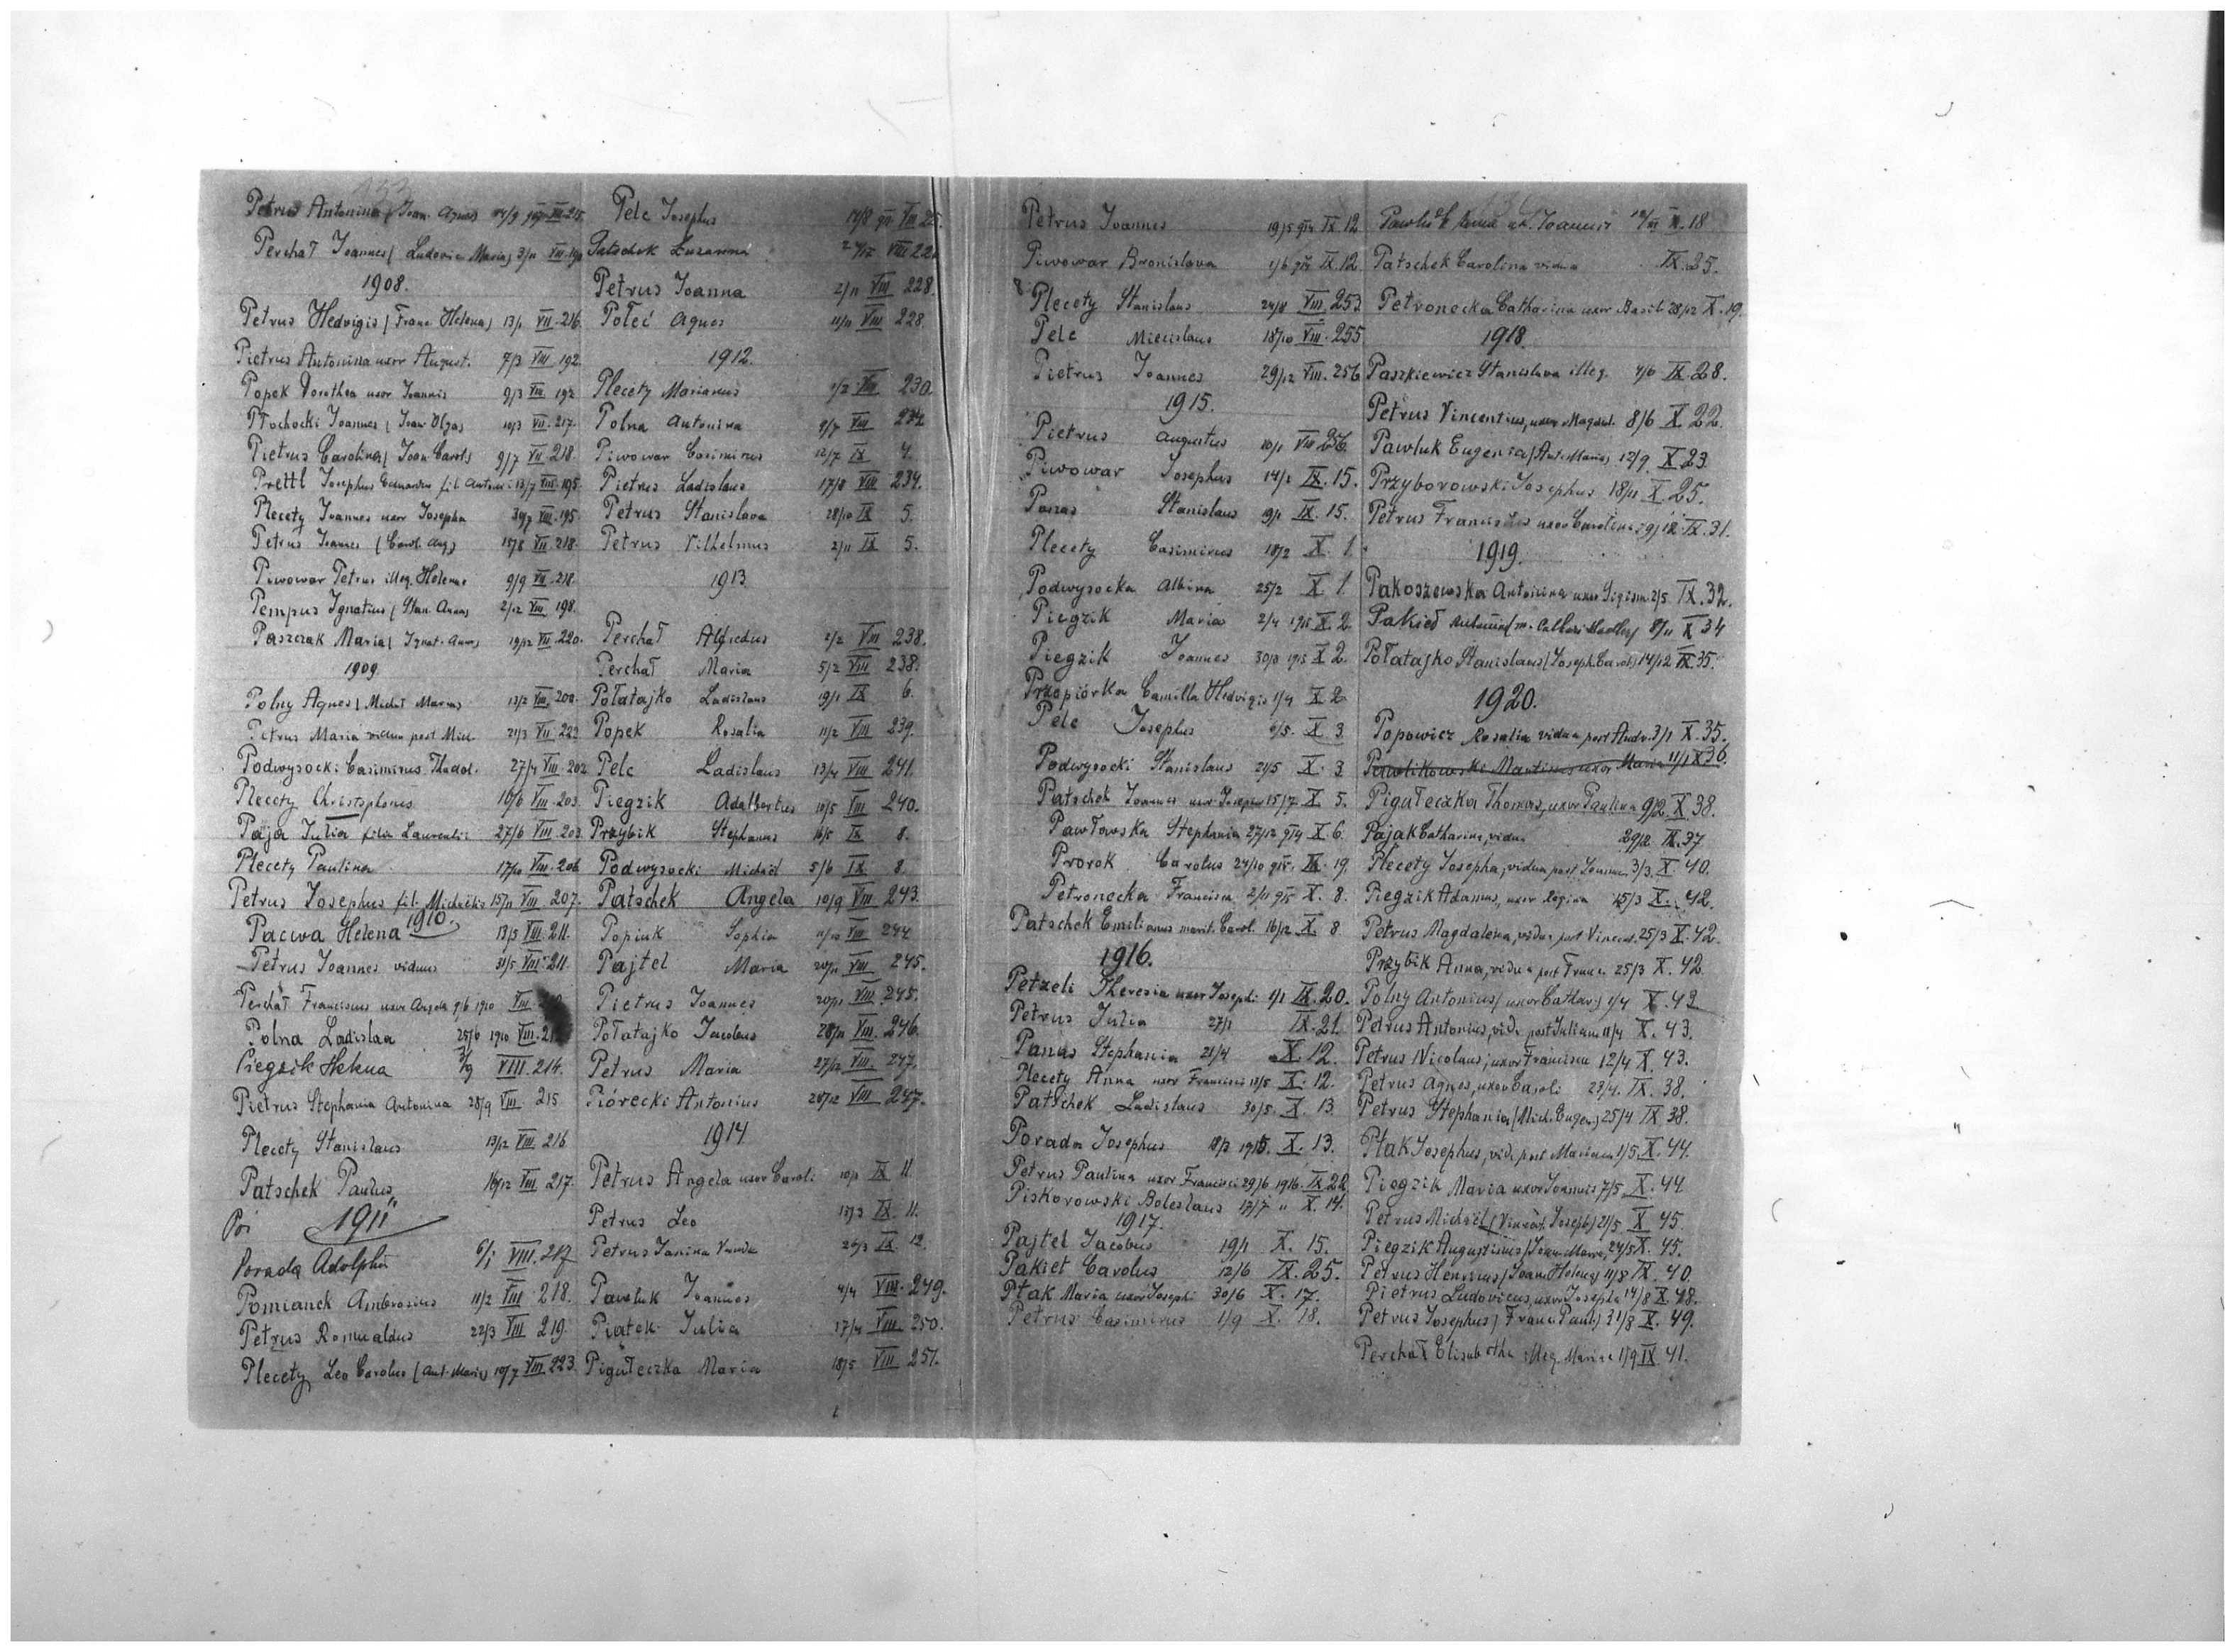 Petrus Antonina (Joan. Agnes)
Perchał Joannes (Ludovic Maria) 3/11 VIII. 190
1908.
Petrus Hedvigis (Franc Helena) 13/1 VII. 216.
Pietrus Antonina uxor August. 7/3 VIII. 192.
Popek Dorothea uxor Joannis 9/3 VIII. 192
Płochocki Joannes (Joan Olga) 10/3 VII. 217.
Pietrus Carolina (Joan Carol) 9/7 VII. 218.
Prettl Josephus fil. Antoni 13/7 VIII. 195.
Plecety Joannes uxor Josepha VIII. 195
Petrus Joannes (Carol. Aug) 18/8 VII. 218.
Piwowar Petrus illeg. Helenae 9/9 VII. 218.
Pempus Ignatius (Stan. Anna) 2/12 VIII. 198.
Paszczak Maria (Ignat. Anna) 19/12 VII. 220.
1909.
Polny Agnes (Michał Marian) 13/2 VIII. 200.
Petrus Maria vidua post Mich. 21/3 VII. 222
Podwysocki Casimirus Thadd. 27/4 VIII. 202
Plecety Christophorus 16/6 VIII. 203
Paja Julia filia Laurentii 27/6 VIII. 203.
Plecety Paulina 17/10 VIII. 206
Petrus Josephus fil. Michaelis 15/11 VIII. 207.
1910.
Pacwa Helena 13/5 VIII. 211.
Petrus Joannes viduus 31/5 VIII. 211.
Perchał Franciscus uxor Angela 9/6 1910 VIII.
Polna Ladislaa 25/6 1910 VIII.
Piegzik Helena VIII. 214.
Pietrus Stephania Antonina 28/9 VIII. 215
Plecety Stanislaus 13/12 VIII. 216
Patschek Paulus 16/12 VIII. 217.
Poi 1911
Porada Adolphus 6/1 VIII. 217
Pomianek Ambrosius 11/2 VIII. 218.
Petrus Romualdus 22/3 VIII. 219.
Plecety Leo Carolus (Ant. Maria) 10/7 VIII 223.
Pelc Josephus
Patschek Zuzanna
Petrus Joanna 2/11 VIII 228.
Połeć Agnes 11/11 VIII 228
1912.
Plecety Marianus 2/2 VIII 230.
Polna Antonina 9/7 VIII 234
Piwowar Casimirus 12/7 IX 4.
Pietrus Ladislaus 17/8 VIII 234.
Petrus Stanislava 28/10 IX 5.
Petrus Vilhelmus 2/11 IX 5.
1913
Perchał Alfredus 2/2 VIII 238.
Perchał Maria 5/2 VIII 238.
Połatajko Ladislaus 19/1 IX 6.
Popek Rosalia 11/2 VIII 239.
Pelc Ladislaus 13/4 VIII 241.
Piegzik Adalbertus 10/5 VIII 240.
Przybik Stephanus 16/5 IX 8.
Podwysocki Michael 5/6 IX 8
Patschek Angela 10/9 VIII 243.
Popiuk Sophia 11/10 VIII 244
Pajtel Maria 20/11 VIII 245.
Pietrus Joannes 20/11 VIII. 245.
Połatajko Jacobus 28/11 VIII. 246.
Petrus Maria 27/12 VIII. 247.
Piórecki Antonius 28/12 VIII 247.
1914
Petrus Angela uxor Caroli 10/1 IX 11.
Petrus Leo IX. 11.
Petrus Janina Vanda IX. 12
Pawluk Joannes 4/4 VIII. 249.
Piatek Julia 17/4 VIII. 250.
Pigułeczka Maria 18/5 VIII 251.
Petrus Joannes 19/5 914 IX. 12
Piwowar Bronislava 1/6 914 IX. 12
Plecety Stanislaus 24/8 VIII. 253
Pelc Miecislaus 18/10 VIII. 255
Pietrus Joannes 29/12 VIII. 256
1915.
Pietrus Augustus 10/1 VIII 256.
Piwowar Josephus 14/1 IX. 15.
Panas Stanislaus 19/1 IX. 15.
Plecety Casimirus 18/2 X. 1.
Podwysocka Albina 25/2 X 1.
Piegzik Maria 2/4 1915 X. 2.
Piegzik Joannes 30/3 1915 X 2.
Przepiórka Camilla Hedvigis 1/4 X 2
Pelc Josephus 2/5. X 3
Podwysocki Stanislaus 21/5 X. 3
Patschek Joannes uxor Josepha 15/7 X 5.
Pawłowska Stephania 27/12 914 X 6.
Prorok Carolus 24/10 915. IX. 19.
Petronecka Francisca 2/11 915 X. 8.
Patschek Emilianus marit. Carol. 16/12 X. 8
1916.
Petzeli Theresia uxor Josephi 1/1 IX. 20.
Petrus Julia 27/1 IX. 21.
Panas Stephania 21/4 X. 12.
Plecety Anna uxor Francisci 13/5 X. 12.
Patschek Ladislaus 30/5. X. 13
Porada Josephus 18/3 1915. X. 13.
Petrus Paulina uxor Francisci 29/6 1916. IX 22.
Piskorowski Boleslaus 17/7 " X. 14.
1917.
Pajtel Jacobus 19/1 X. 15.
Pakiet Carolus 12/6 IX. 25.
Ptak Maria uxor Josephi 30/6 X. 17.
Petrus Casimirus 1/9 X. 18.
Pawluk Joannis X. 18
Patschek Carolina vidua IX. 25.
Petronecka Catharina uxor Basili 28/12 X. 19.
1918.
Paszkiewicz Stanislava illeg. 4/6 IX. 28.
Petrus Vincentius, uxor Magdal. 8/6 X. 22.
Pawluk Eugenia (Ant. Maria) 12/9 X 23.
Przyborowski Josephus 18/11 X. 25.
Petrus Franciscus uxor Carolina 29/12 IX. 31.
1919.
Pakoszewska Antonina uxor Sigism. 2/5 IX. 32.
Pakieł 8/11 X 34
Połatajko Stanislaus (Joseph. Carol.) 14/12 IX 35.
1920.
Popowicz Rosalia vidua post Andr. 3/1 X. 35.
Pawlikowski Martinus uxor Maria 11/1 X 36.
Pigułeczka Thomas, uxor Paulina 9/2. X 38.
Pająk Catharina, vidua 29/2. IX. 37
Plecety Josepha, vidua post Joannem 3/3. X. 40.
Piegzik Adamus, uxor Regina 15/3 X. 42.
Petrus Magdalena, vidua post Vincent. 25/3 X. 42.
Przybik Anna, vidua post Franc. 25/3 X. 42
Polny Antonius (uxor Cathar.) 1/4 X. 42
Petrus Antonius, vid. post Juliam 11/4 X. 43.
Petrus Nicolaus, uxor Francisca 12/4 X. 43.
Petrus Agnes, uxor Caroli 23/4. IX. 38.
Petrus Stephania (Mich. Eugen.) 25/4 IX 38.
Ptak Josephus, vid. post Mariam 1/5. X. 44.
Piegzik Maria uxor Joannis 7/5 X. 44
Petrus Michael (Vincent. Joseph.) 21/5 X 45.
Piegzik Augustinus (Joan. Maria) 24/5 X. 45.
Petrus Henricus (Joan. Helena) 11/8 IX. 40.
Pietrus Ludovicus, uxor Josepha 14/8 X. 48.
Petrus Josephus (Franc. Paul.) 31/8 X. 49.
Perchał Elisabetha illeg. Mariae 1/9 IX 41.